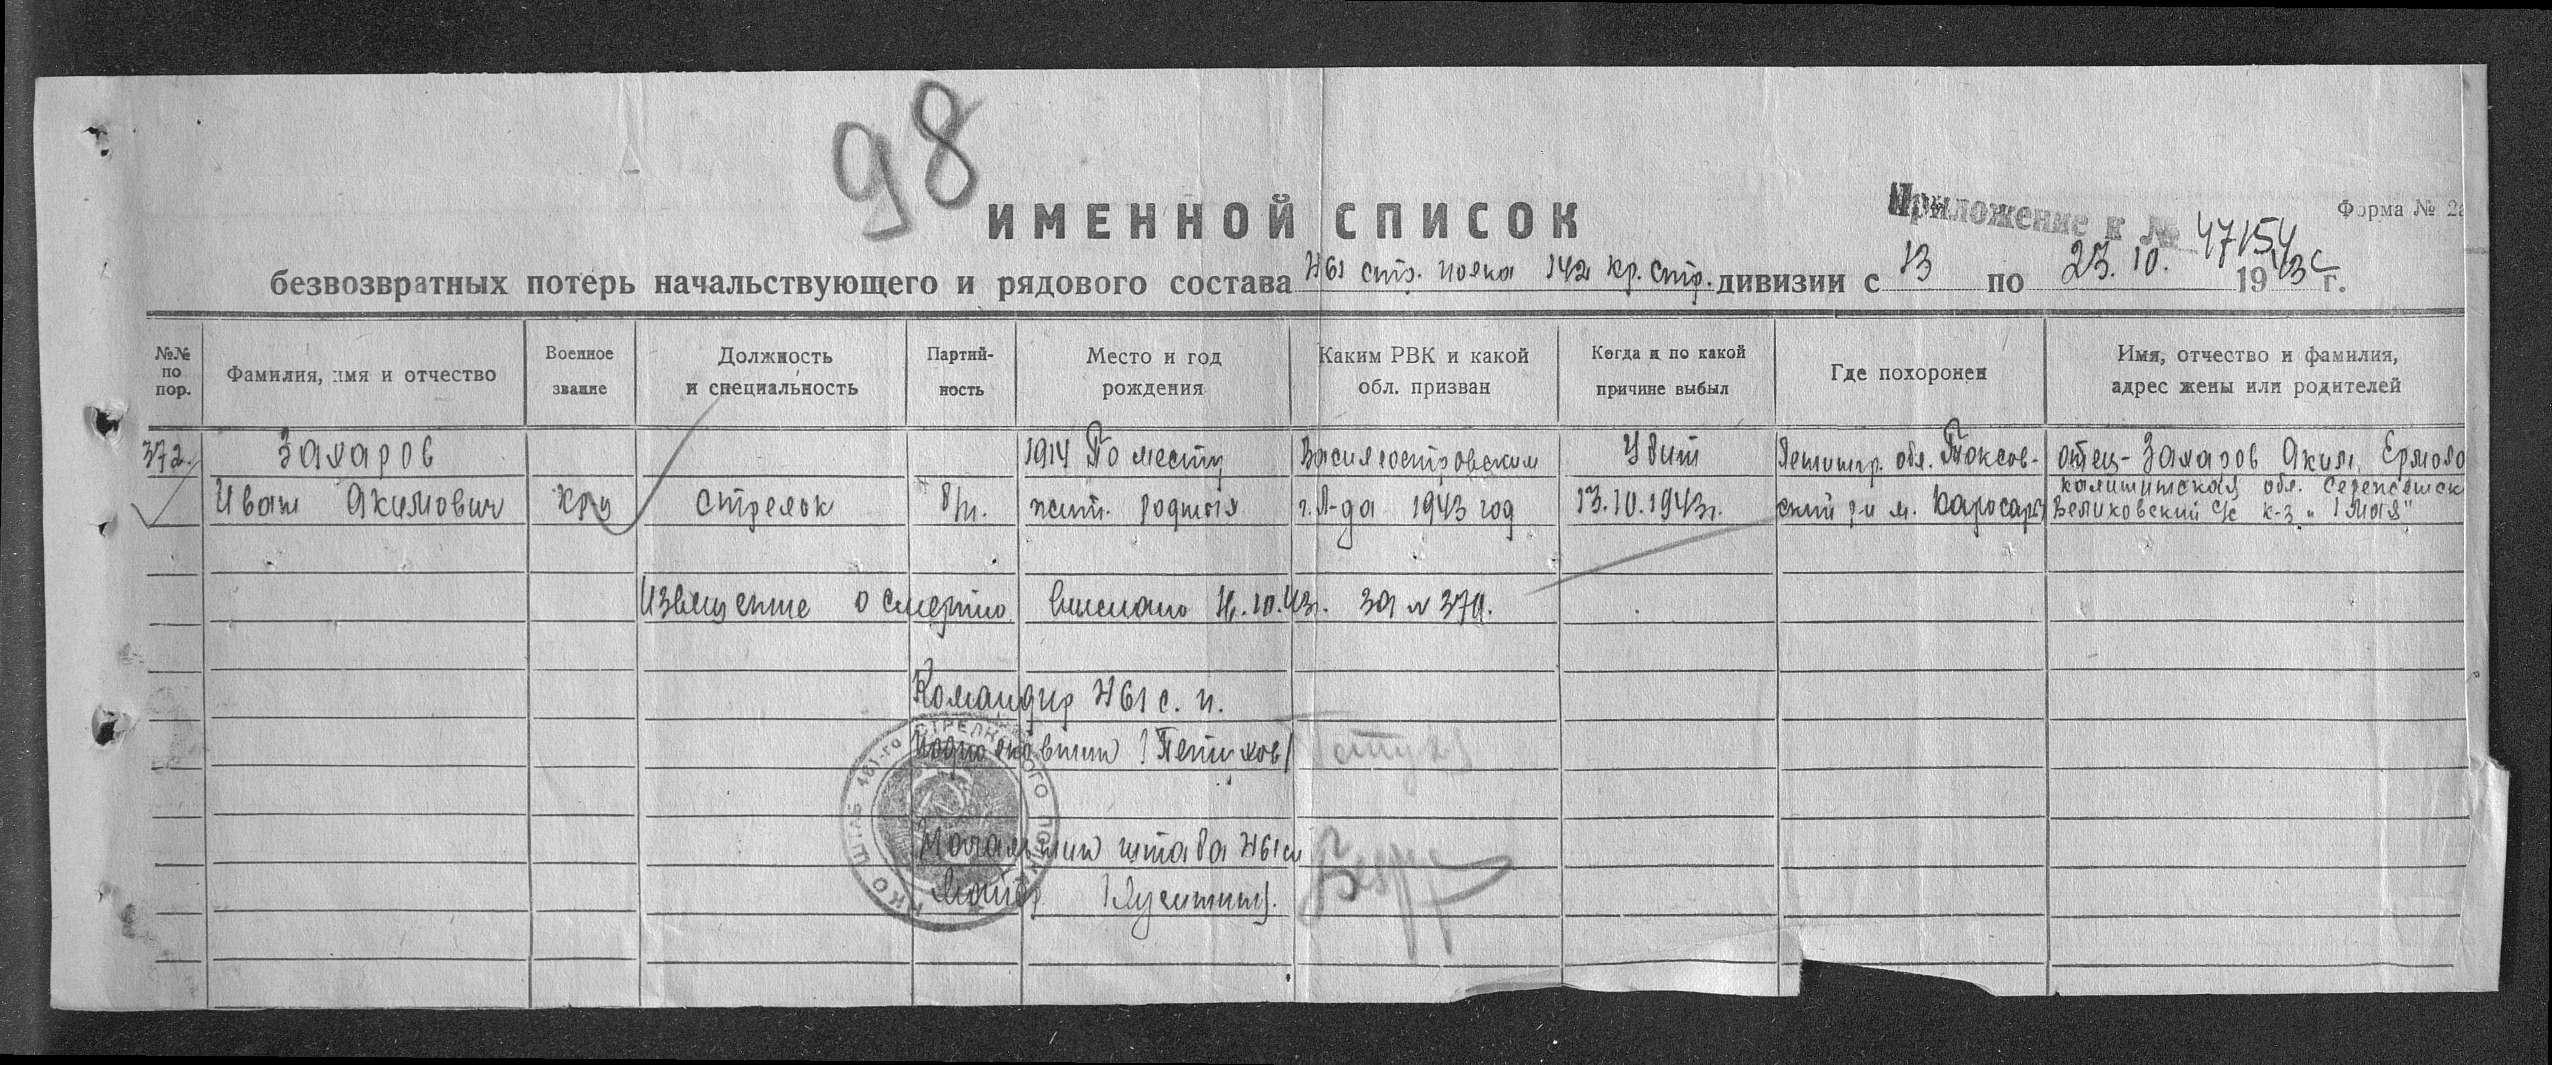 98
ИМЕННОЙ СПИСОК
Приложение к № 47154с
Форма № 2а
безвозвратных потерь начальствующего и рядового состава 461 стр. полка 142 кр. стр. дивизии с 13 по 23. 10. 1943 г.
№№ по пор.
Фамилия, имя и отчество
Военное звание
Должность и специальность
Партийность
Место и год рождения
Каким РВК и какой обл. призван
Когда и по какой причине выбыл
Где похоронен
Имя, отчество и фамилия, адрес жены или родителей
372. Захаров 1914 По месту Василеостровским Убит Ленингр. обл. Токсов- отец - Захаров Аким Ермоло
Калининская обл.
Иван Акимович кр-ц стрелок б/п. жит. родных г. Л-да 1943 год 13.10.1943г. ский р-н м. Каросары Великовский с/с к-з "1 Мая"
Извещение о смерти выслано 14.10.43г. за № 374.
Командир 461 с. п.
подполковник /Петухов/
Начальник штаба 461 сп
Майор
НКО ШТАБ 461-го СТРЕЛКОВОГО ПОЛКА